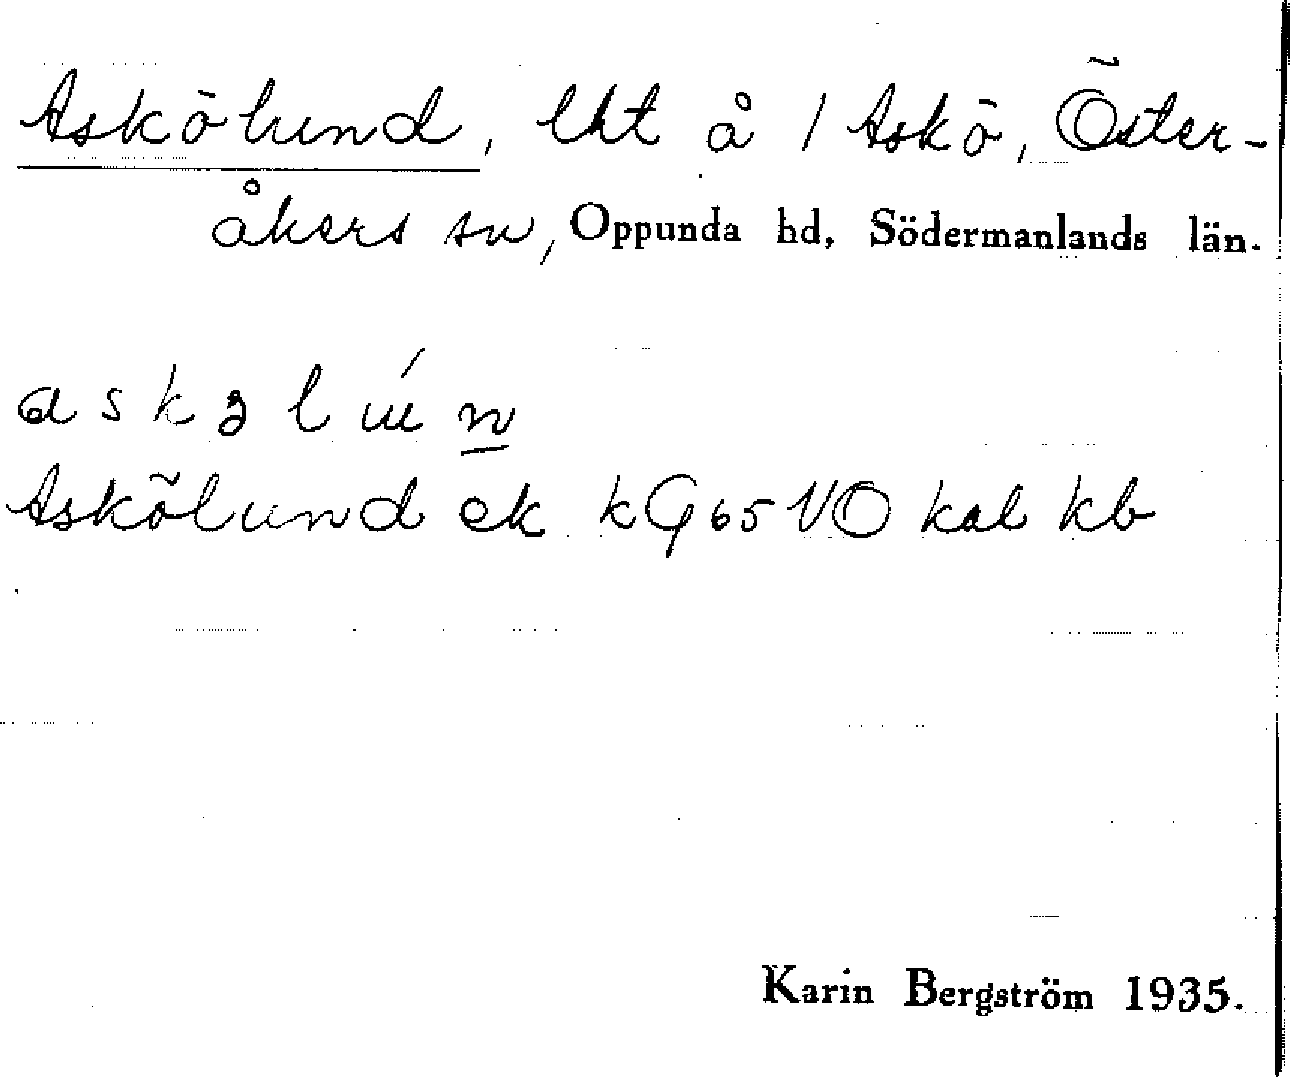 Askölund, lht å 1 Askö, Öster-
åkers sn, Oppunda hd, Södermanlands län.
askɜlún
Askölund ek kG65VO kal kb
Karin Bergström 1935.